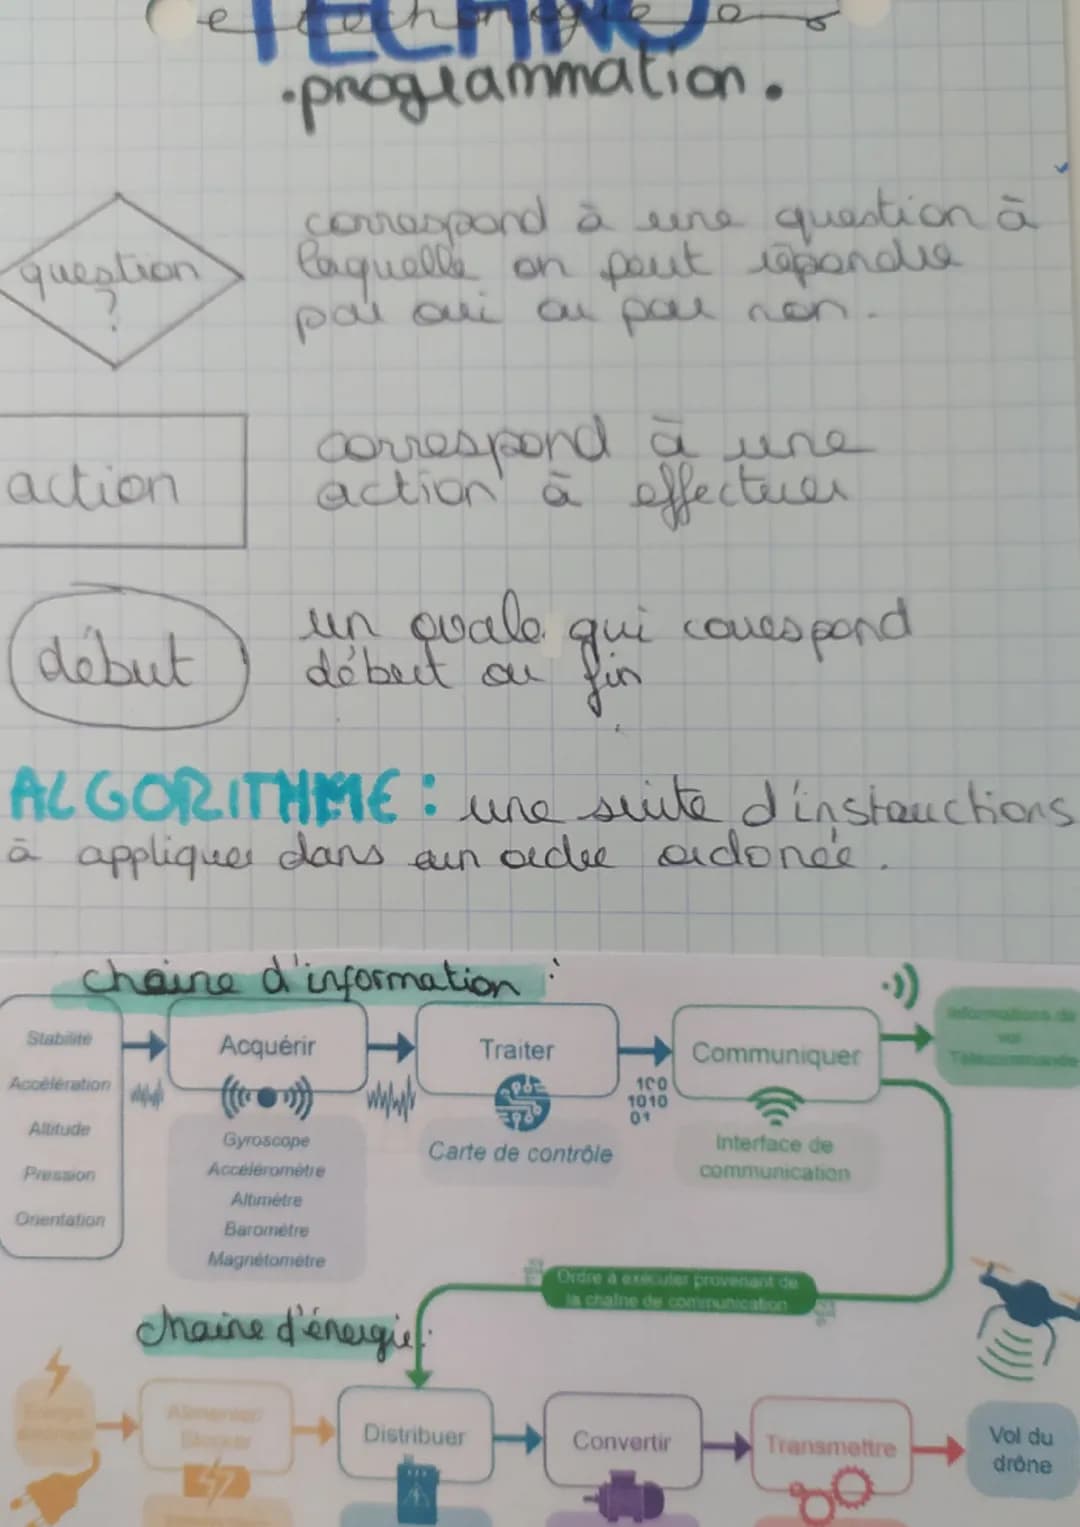 TECHNO
.programmation.
question
?
correspond à une question à
laquelle on peut répondre
par oui ou par non.
action
correspond à une
action à effectuer
début
un ovale qui correspond
début ou fin
ALGORITHME : une suite d'instructions
à appliquer dans un ordre ordonée.
chaine d'information :
Stabilité
Accélération
Altitude
Pression
Orientation
Acquérir
Gyroscope
Accéléromètre
Altimètre
Baromètre
Magnétomètre
Traiter
Carte de contrôle
100
1010
01
Communiquer
Interface de
communication
Informations de
vol
Télécommande
Ordre à exécuter provenant de
la chaîne de communication
chaine d'énergie :
Energie
Alimenter/
Stocker
Distribuer
Convertir
Transmettre
Vol du
drône